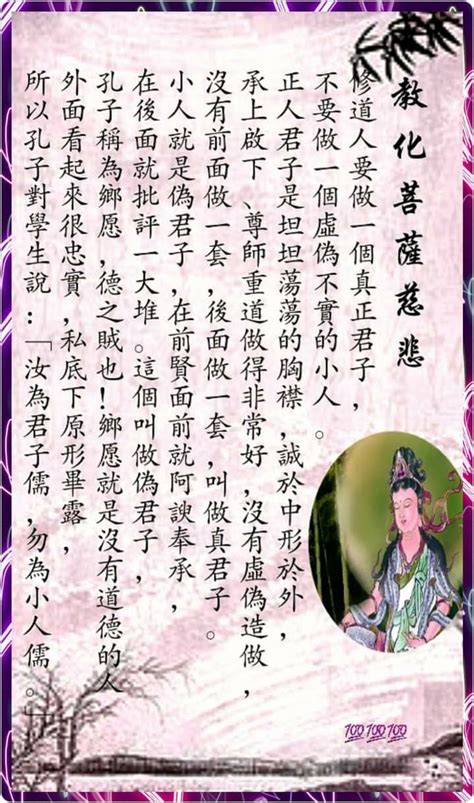 教化菩薩慈悲
修道人要做一個真正君子，
不要做一個虛偽不實的小人。
正人君子是坦坦蕩蕩的胸襟，誠於中形於外，
承上啟下、尊師重道做得非常好，沒有虛偽造做，
沒有前面做一套，後面做一套，叫做真君子。
小人就是偽君子，在前賢面前就阿諛奉承，
在後面就批評一大堆。這個叫做偽君子，
孔子稱為鄉愿，德之賊也！鄉愿就是沒有道德的人
外面看起來很忠實，私底下原形畢露，
所以孔子對學生說：「汝為君子儒，勿為小人儒。」
100 100 100